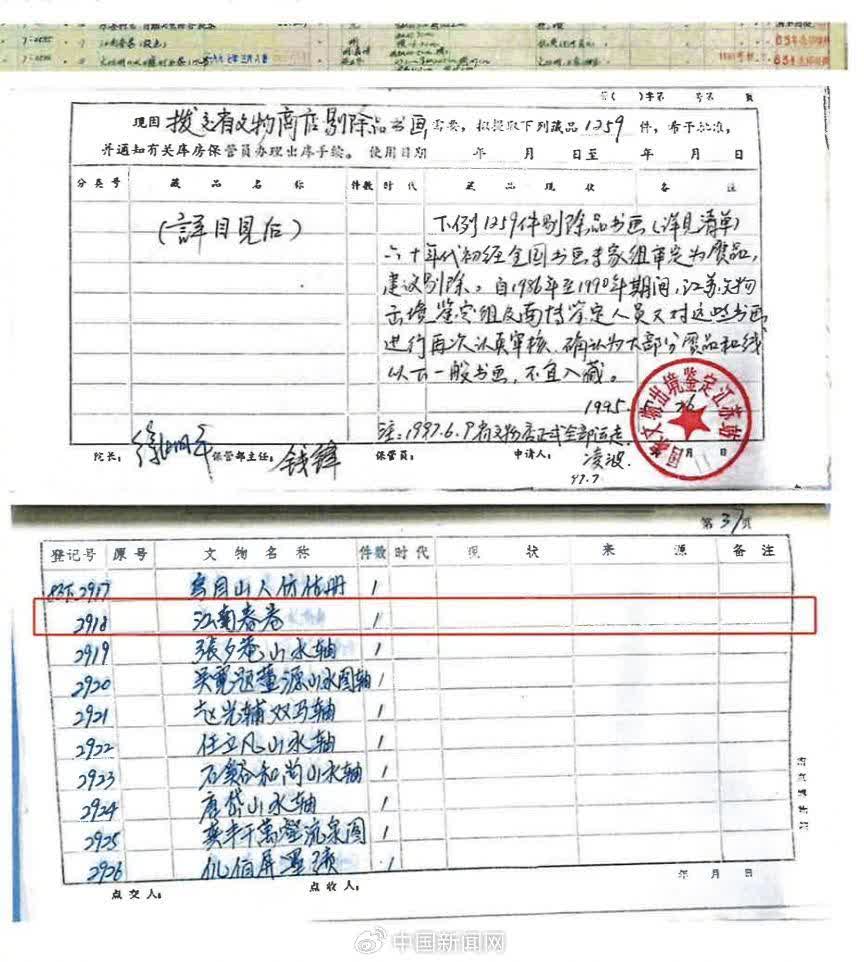 第( )字第 号第 页
现因 拨交省文物商店剔除品书画 需要,拟提取下列藏品 1259 件,希予批准,
并通知有关库房保管员办理出库手续。 使用日期 年 月 日至 年 月 日
分类号 藏品名称 件数 时代 藏品现状 备注
(详目见后)
下例1259件剔除品书画(详见清单)
六十年代初经全国书画专家组审定为赝品,
建议剔除。自1986年至1990年期间,江苏文物
出境鉴定组及南博鉴定人员又对这些书画
进行再次认真审核,确认为大部分赝品和线
以下一般书画,不宜入藏。
1995. 26
注:1997.6.9省文物店正式全部运走
院长: 徐湖平 保管部主任: 钱锋 保管员: 申请人: 凌波 年 月 日
97.7
文物出境鉴定江苏站
第 37 页
登记号 原号 文物名称 件数 时代 现状 来源 备注
2917 仿古册 1
2918 江南春卷 1
2919 張夕菴山水轴 1
2920 吴宽题董源山水图轴 1
2921 赵光辅双马轴 1
2922 任立凡山水轴 1
2923 石谿和尚山水轴 1
2924 唐岱山水轴 1
2925 龚半千萬壑流泉图 1
2926 1
点交人: 点收人: 年 月 日
中国新闻网